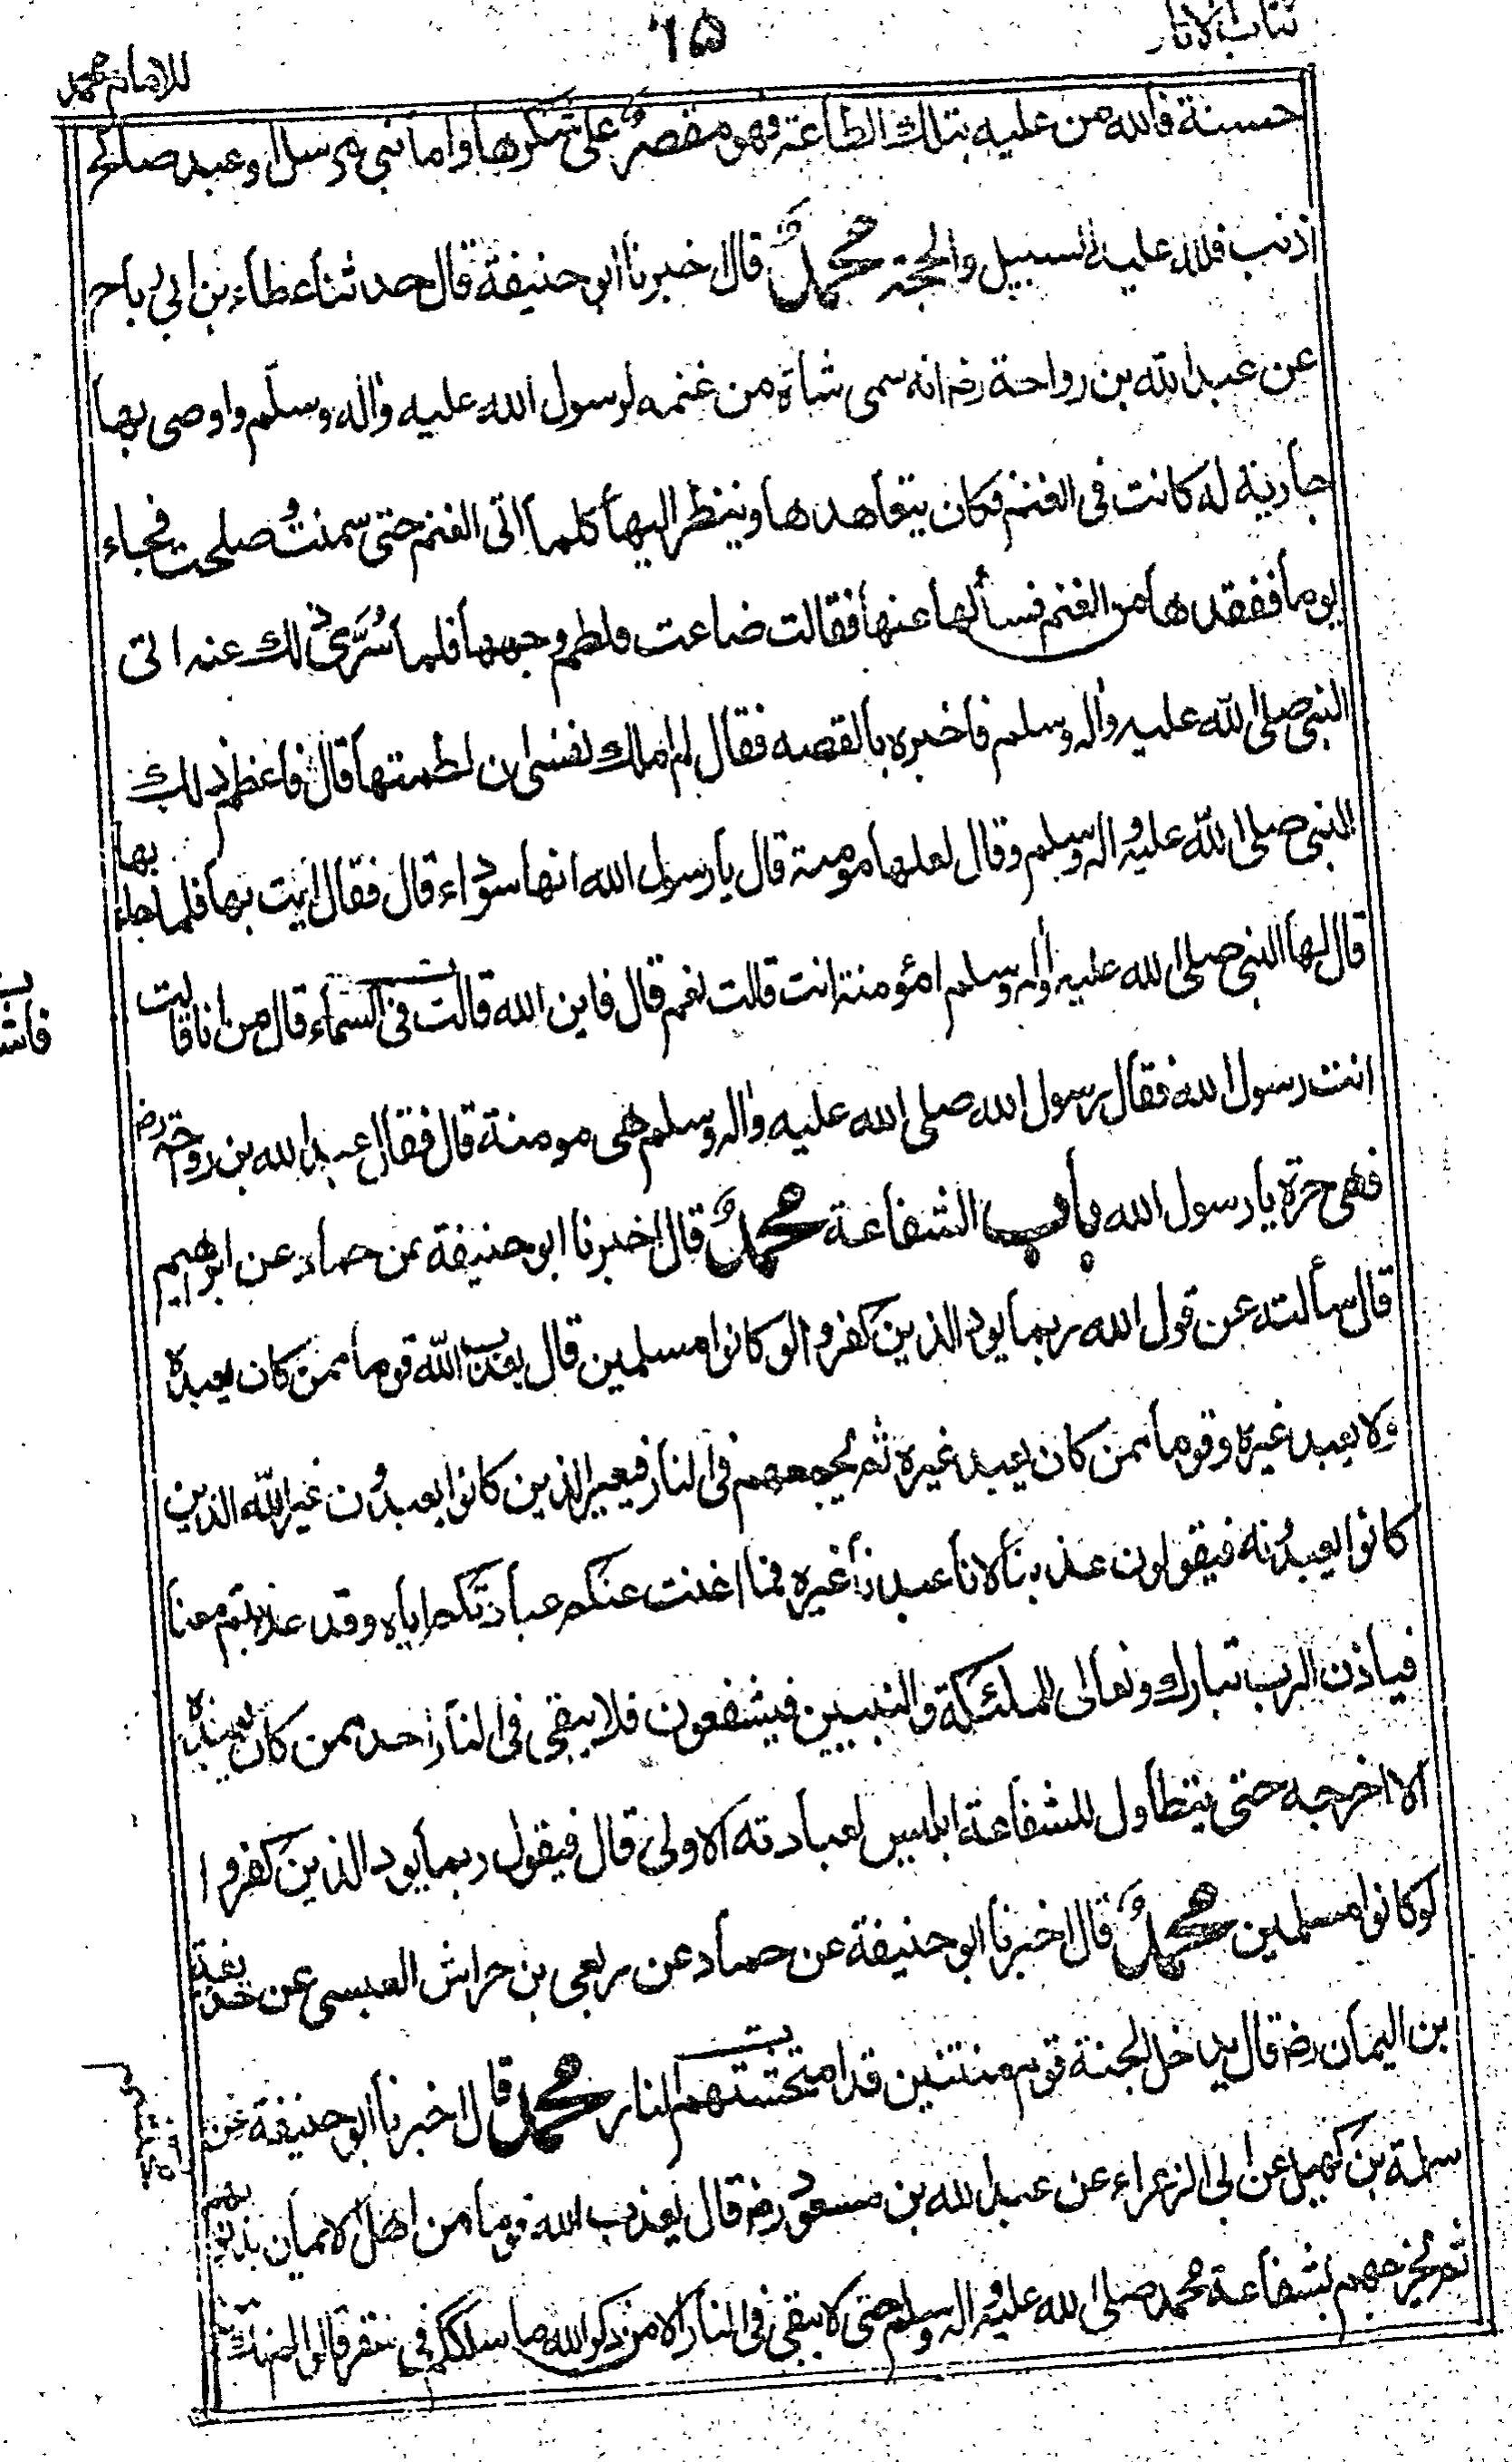 كتاب الاثار
٦٥
للامام محمد
حسنة فالله من عليه بتلك الطاعة فهو مقصر على شكرها واما نبي مرسل او عبد صالح
اذنب فلله عليه السبيل والحجة محمدٌ قال اخبرنا ابو حنيفة قال حدثنا عطاء بن ابي رباح
عن عبد الله بن رواحة رض انه سمى شاة من غنمه لرسول الله عليه واله وسلم واوصى بها
جارية له كانت فى الغنم فكان يتعاهدها وينظر اليها كلما اتى الغنم حتى سمنت وصلحت فجاء
يوما ففقدها من الغنم فسألها عنها فقالت ضاعت فلطم وجهها فلما سُرّى ذلك عنه اتى
النبي صلى الله عليه واله وسلم فاخبره بالقصه فقال لم املك نفسى ان لطمتها قال فاعظم ذلك
النبي صلى الله عليه واله وسلم وقال لعلها مومنة قال يا رسول الله انها سوداء قال فقال ايت بها فلما جاء بها
قال لها النبي صلى الله عليه واله وسلم امؤمنة انت قالت نعم قال فاين الله قالت فى السماء قال من انا قالت
انت رسول الله فقال رسول الله صلى الله عليه واله وسلم هى مومنة قال فقال عبد الله بن رواحة رض
فهى حرة يا رسول الله باب الشفاعة محمدٌ قال اخبرنا ابو حنيفة عن حماد عن ابرهيم
قال سألته عن قول الله ربما يود الذين كفروا لو كانوا مسلمين قال يعذب الله قوما ممن كان يعبده
ولا يعبد غيره وقوما ممن كان يعبد غيره ثم يجمعهم فى النار فيعير الذين كانوا يعبدون غير الله الذين
كانوا يعبدونه فيقولون عذبنا لانا عبدنا غيره فما اغنت عنكم عبادتكم اياه وقد عذبتم معنا
فياذن الرب تبارك وتعالى للملئكة والنبيين فيشفعون فلا يبقى فى النار احد ممن كان يعبده
الا اخرجه حتى يتطاول للشفاعة ابليس لعبادته الاولى قال فيقول ربما يود الذين كفروا
لو كانوا مسلمين محمدٌ قال اخبرنا ابو حنيفة عن حماد عن ربعى بن حراش العبسى عن حذيفة
بن اليمان رض قال يدخل الجنة قوم منتنين قد امتحشتهم النار محمد قال اخبرنا ابو حنيفة عن
سلمة بن كهيل عن ابى الزعراء عن عبد الله بن مسعود رض قال يعذب الله قوما من اهل الايمان بذنوبهم
ثم يخرجهم بشفاعة محمد صلى الله عليه واله وسلم حتى لا يبقى فى النار الا من ذكر الله ما سلككم فى سقر قالوا لم نك